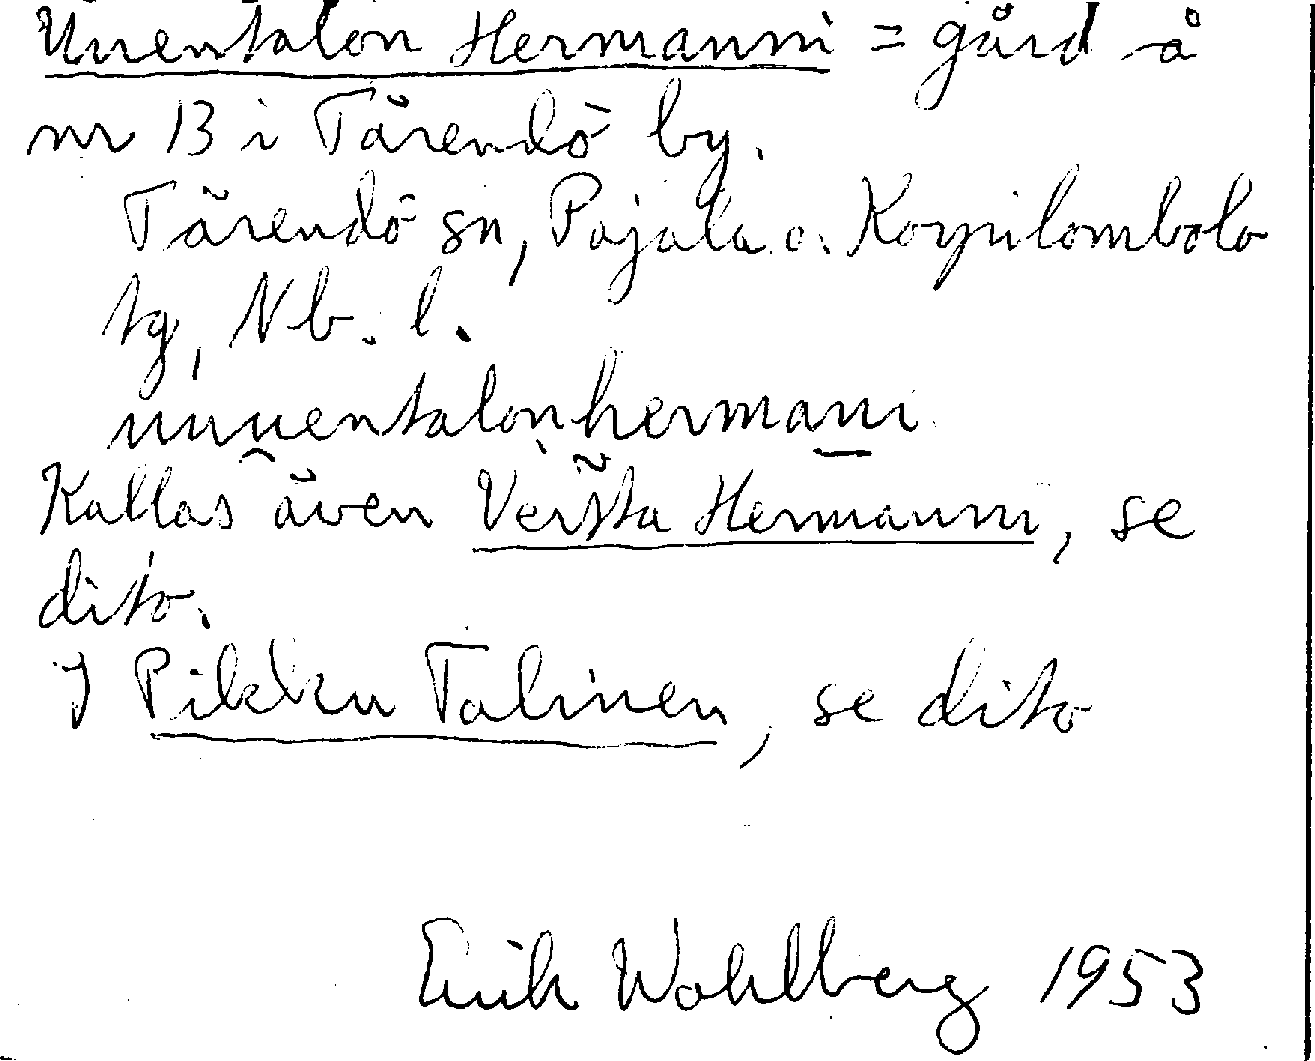 Uuentalon Hermanni = gård å
nr 13 i Tärendö by.
Tärendö sn, Pajala o. Korpilombolo
tg, Nb. l.
uuu̯entalonhermani
Kallas även Veršta Hermanni, se
dito.
J Pikku Talinen, se dito
Erik Wahlberg 1953